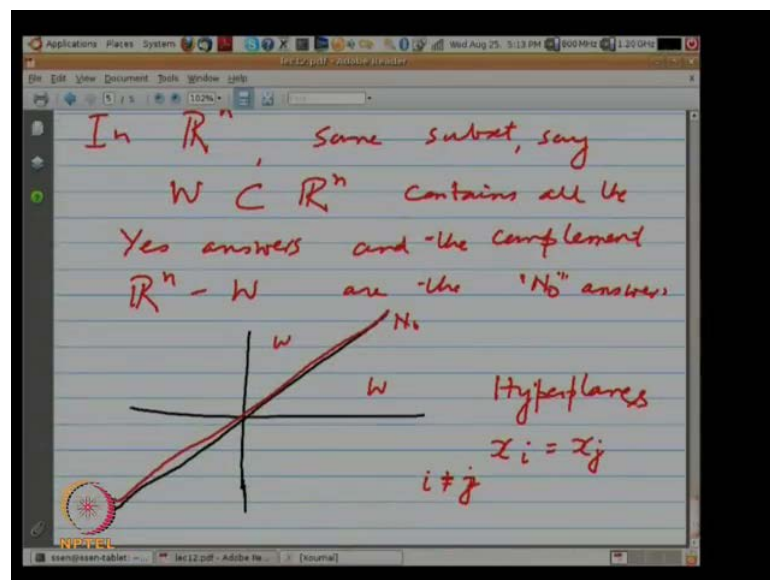 Applications Places System Wed Aug 25, 5:13 PM 800 MHz 1.20 GHz
lec12.pdf - Adobe Reader
File Edit View Document Tools Window Help
5 / 5 102%
In ℝⁿ, some subset, say
W ⊂ ℝⁿ contains all the
Yes answers and the complement
ℝⁿ - W are the "No" answers
W No
W Hyperplanes
xᵢ = xⱼ
i ≠ j
NPTEL
ssen@ssen-tablet: ~... lec12.pdf - Adobe Re... [Xournal]